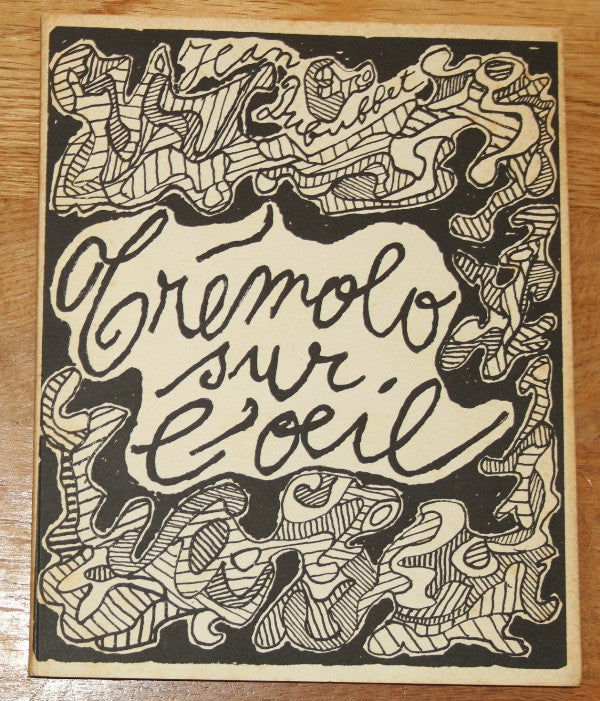 Jean
Dubuffet
Trémolo
sur
l'oeil